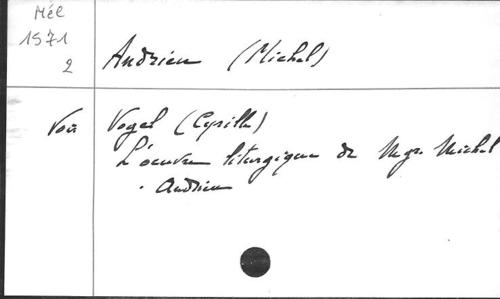 Mél
1571
2
Andrieu (Michel)
Voir Vogel (Cyrille)
L'oeuvre liturgique de Mgr. Michel
Andrieu